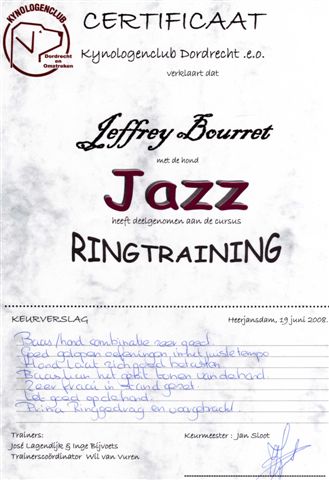 KYNOLOGENCLUB
Dordrecht
en
Omstreken
CERTIFICAAT
Kynologenclub Dordrecht .e.o.
verklaart dat
Jeffrey Bourret
met de hond
Jazz
heeft deelgenomen aan de cursus
RINGTRAINING
KEURVERSLAG
Heerjansdam, 19 juni 2008.
Baas/hond combinatie zeer goed.
Goed gelopen oefeningen in het juiste tempo
Hond laat zich goed betasten.
Baas kan het gebit tonen van de hond.
Zeer fraai in stand gezet.
Let goed op de hond.
Prima Ringgedrag en voorgebracht.
Trainers:
José Lagendijk & Inge Bijvoets
Trainerscoördinator Wil van Vuren
Keurmeester : Jan Sloot